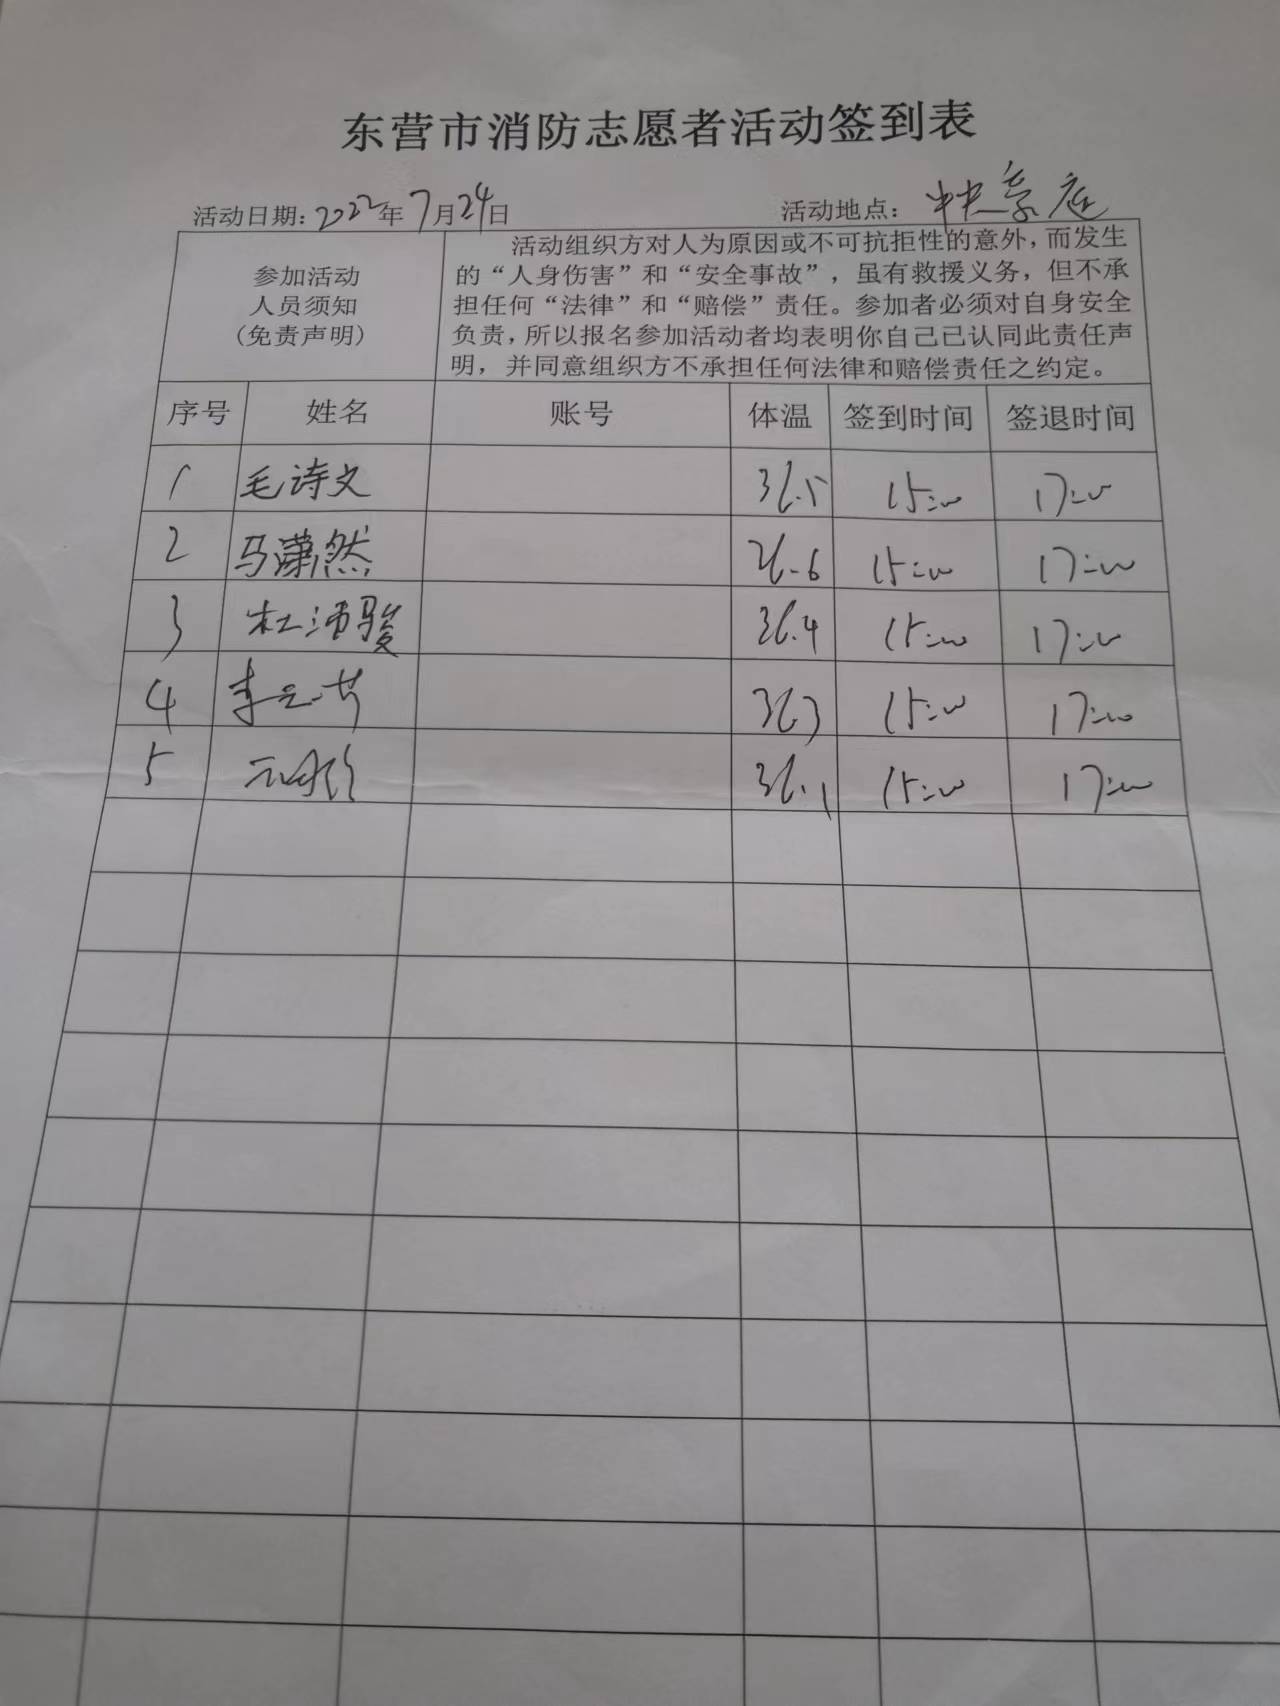 东营市消防志愿者活动签到表
活动日期:2022年7月24日 活动地点:中央豪庭
参加活动
人员须知
(免责声明)
活动组织方对人为原因或不可抗拒性的意外,而发生
的“人身伤害”和“安全事故”,虽有救援义务,但不承
担任何“法律”和“赔偿”责任。参加者必须对自身安全
负责,所以报名参加活动者均表明你自己已认同此责任声
明,并同意组织方不承担任何法律和赔偿责任之约定。
序号 姓名 账号 体温 签到时间 签退时间
1 毛诗文 36.5 15:00 17:00
2 马潇然 36.6 15:00 17:00
3 杜沛骏 36.4 15:00 17:00
4 李元芳 36.3 15:00 17:00
5 36.1 15:00 17:00